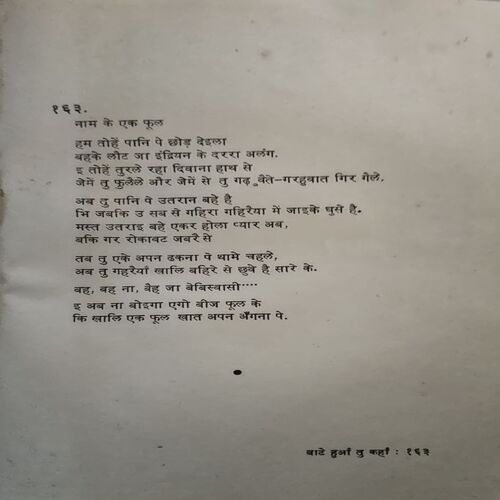 १६३.
नाम के एक फूल
हम तोहें पानि पे छोड़ देइला
बहके लौट जा इंद्रियन के दररा अलंग.
इ तोहें तुरले रहा दिवाना हाथ से
जेमें तु फुलैले और जेमें से तु गढ़ुवैते-गरहुवात गिर गैले.
अब तु पानि पे उतरान बहे है
भि जबकि उ सब से गहिरा गहिरैया में जाइके घुसे है.
मस्त उतराइ बहे एकर होला प्यार अब,
बकि गर रोकावट जबरै से
तब तु एके अपन ढकना पे थामे चहले,
अब तु गहरैयाँ खालि बहिरे से छुवे है सारे के.
बह, बह ना, बैह जा बेबिस्वासी····
इ अब ना बोइगा एगो बीज फूल के
कि खालि एक फूल खात अपन अँगना पे.
बाटे हुआँ तु कहाँ : १६३